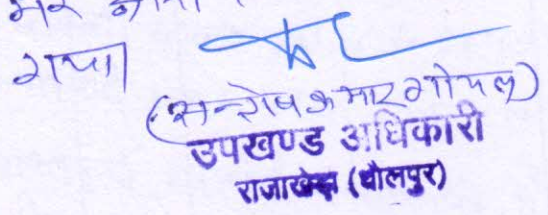 गया
(सन्तोष कुमार गोयल)
उपखण्ड अधिकारी
राजाखेड़ा (धौलपुर)